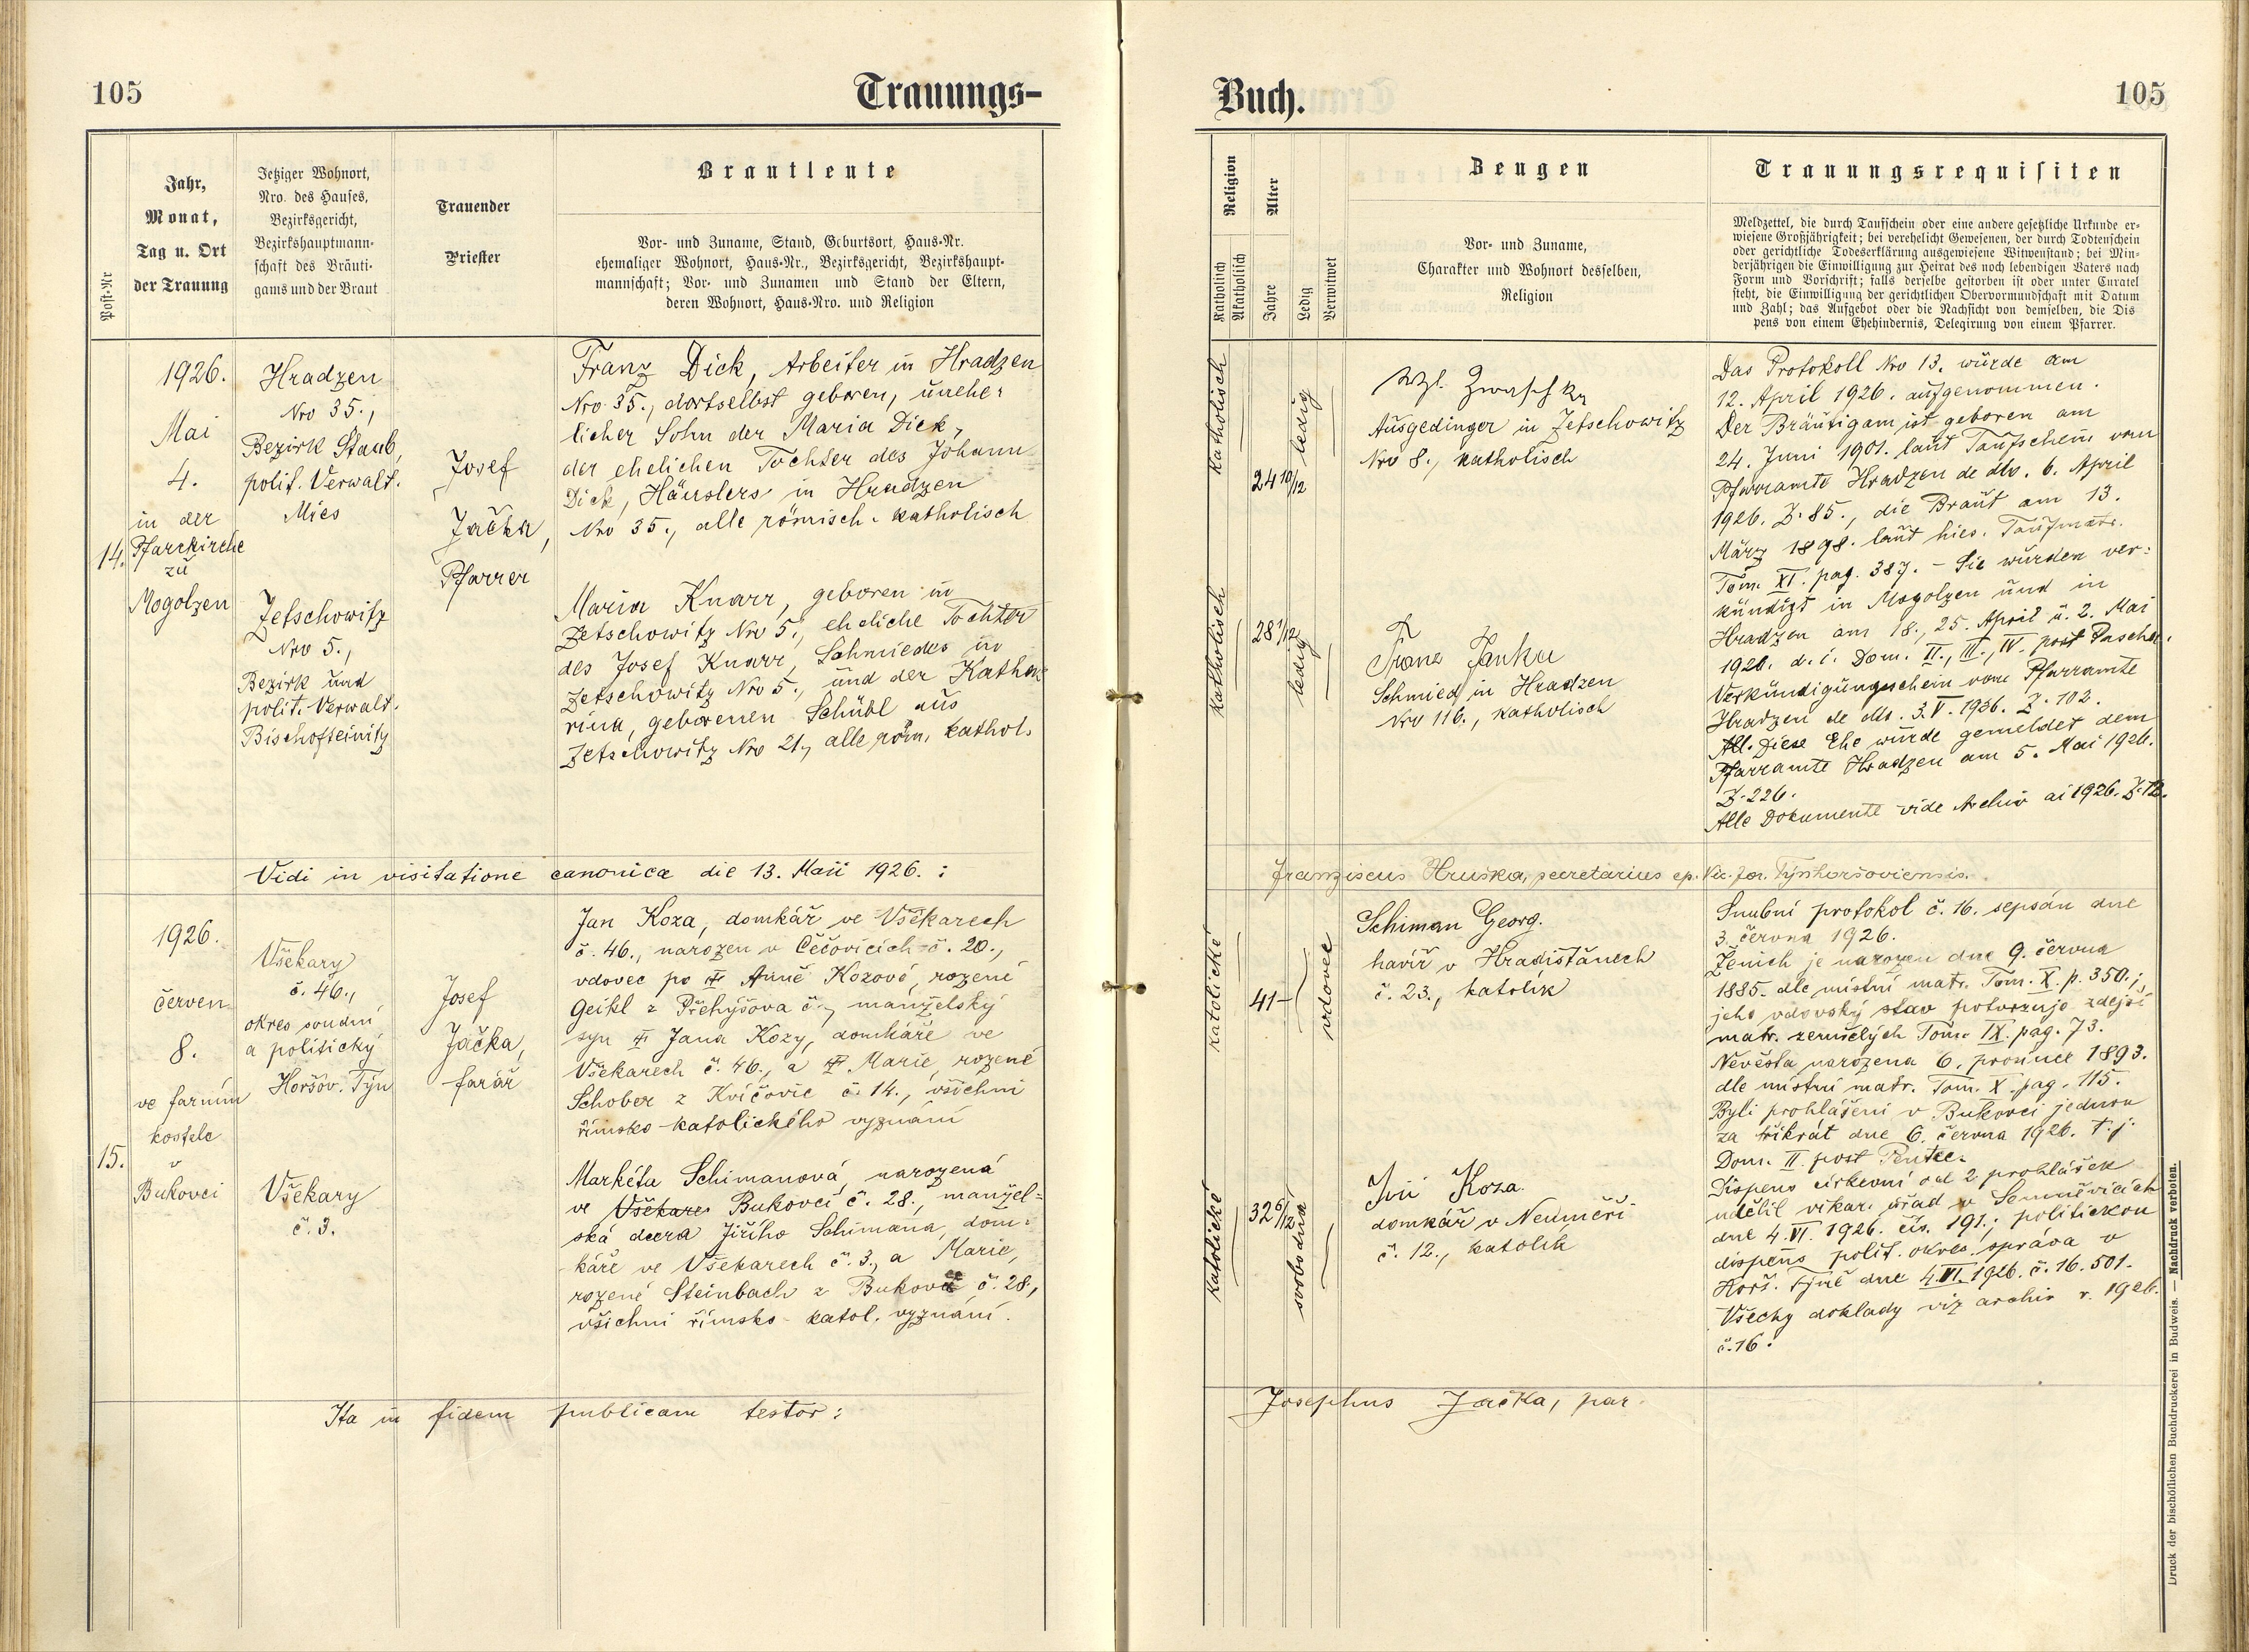 105
Trauungs-
Post-Nr
Jahr,
Monat,
Tag u. Ort
der Trauung
Jetziger Wohnort,
Nro. des Hauses,
Bezirksgericht,
Bezirkshauptmann-
schaft des Bräuti-
gams und der Braut
Trauender
Priester
Brautleute
Vor- und Zuname, Stand, Geburtsort, Haus-Nr.
ehemaliger Wohnort, Haus-Nr., Bezirksgericht, Bezirkshaupt-
mannschaft; Vor- und Zunamen und Stand der Eltern,
deren Wohnort, Haus-Nro. und Religion
14.
1926.
Mai
4.
in der
Pfarrkirche
zu
Mogolzen
Hradzen
Nro 35.,
Bezirk Staab,
polit. Verwalt.
Mies
Zetschowitz
Nro 5.,
Bezirk und
polit. Verwalt.
Bischofteinitz
Josef
Jačka,
Pfarrer
Franz Dick, Arbeiter in Hradzen
Nro 35., dortselbst geboren, unehe-
licher Sohn der Maria Dick,
der ehelichen Tochter des Johann
Dick, Häuslers in Hradzen
Nro 35., alle römisch-katholisch
Maria Knarr, geboren in
Zetschowitz Nro 5., eheliche Tochter
des Josef Knarr, Schmiedes in
Zetschowitz Nro 5., und der Katha-
rina, geborenen Schübl aus
Zetschowitz Nro 21., alle röm. kathol.
Vidi in visitatione canonica die 13. Maii 1926. :
15.
1926.
červen
8.
ve farním
kostele
v
Bukovci
Všekary
č. 46.,
okres soudní
a politický
Horšov. Týn
Všekary
č. 3.
Josef
Jačka,
farář
Jan Koza, domkář ve Všekarech
č. 46., narozen v Čečovicích č. 20.,
vdovec po Anně Kozové, rozené
Geikl z Přehýšova č., manželský
syn Jana Kozy, domkáře ve
Všekarech č. 46., a Marie, rozené
Schober z Kvíčovic č. 14., všichni
římsko-katolického vyznání
Markéta Schimanová, narozená
ve Všekare Bukovci č. 28., manžel-
ská dcera Jiřího Schimana, dom-
káře ve Všekarech č. 3., a Marie,
rozené Steinbach z Bukovce č. 28,
všichni římsko-katol. vyznání.
Ita in fidem publicam testor:
Buch.
105
Religion
Katholisch
Akatholisch
Alter
Jahre
Ledig
Verwitwet
Zeugen
Vor- und Zuname,
Charakter und Wohnort desselben,
Religion
Trauungsrequisiten
Meldzettel, die durch Taufschein oder eine andere gesetzliche Urkunde er-
wiesene Großjährigkeit; bei verehelicht Gewesenen, der durch Todtenschein
oder gerichtliche Todeserklärung ausgewiesene Witwenstand; bei Min-
derjährigen die Einwilligung zur Heirat des noch lebendigen Vaters nach
Form und Vorschrift; falls derselbe gestorben ist oder unter Curatel
steht, die Einwilligung der gerichtlichen Obervormundschaft mit Datum
und Zahl; das Aufgebot oder die Nachsicht von demselben, die Dis
pens von einem Ehehindernis, Delegirung von einem Pfarrer.
katholisch
24 10/12
ledig
katholisch
28 1/12
ledig
Ausgedinger in Zetschowitz
Nro 8., katholisch
Franz Janka
Schmied in Hradzen
Nro 116., katholisch
Das Protokoll Nro 13. wurde am
12. April 1926. aufgenommen.
Der Bräutigam ist geboren am
24. Juni 1901. laut Taufschein vom
Pfarramte Hradzen de dto. 6. April
1926. Z. 85., die Braut am 13.
März 1898. laut hies. Taufmatr.
Tom. XI. pag. 387. - Sie wurden ver-
kündigt in Mogolzen und in
Hradzen am 18., 25. April u. 2. Mai
1926. d. i. Dom. II., III., IV. post Pascha.
Verkündigungsschein vom Pfarramte
Hradzen de dto. 3. V. 1926. Z. 102.
All. Diese Ehe wurde gemeldet dem
Pfarramte Hradzen am 5. Mai 1926.
Z. 226.
Alle Dokumente vide Archiv ai 1926. Z. 13.
Franziscus Hruška, secretarius ep. Vic. for. Týnhoršoviensis.
katolické
41-
vdovec
katolické
32 6/12
svobodna
Schiman Georg.
havíř v Hradišťanech
č. 23., katolík
Jiří Koza.
domkář v Neuměři
č. 12., katolík
Snubní protokol č. 16. sepsán dne
3. června 1926.
Ženich je narozen dne 9. června
1885. dle místní matr. Tom. X. p. 350.;
jeho vdovský stav potvrzuje zdejší
matr. zemřelých Tom. IX. pag. 73.
Nevěsta narozena 6. prosince 1893.
dle místní matr. Tom. X. pag. 115.
Byli prohlášeni v Bukovci jednou
za třikrát dne 6. června 1926. t. j.
Dom. II. post Pentec.
Dispens církevní od 2 prohlášek
udělil vikar. úřad v Semněvicích
dne 4. VI. 1926. čís. 191.; politickou
dispens polit. okres. správa v
Horš. Týně dne 4. VI. 1926. č. 16.501.
Všechy doklady viz archiv r. 1926.
č. 16.
Josephus Jačka, par.
Druck der bischöflichen Buchdruckerei in Budweis. — Nachdruck verboten.